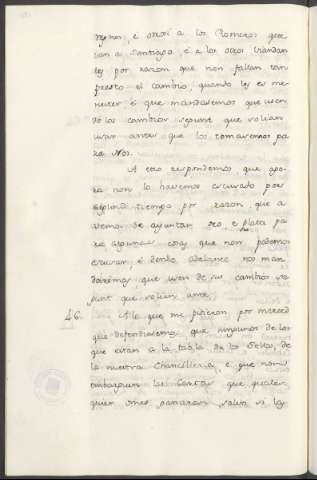 regnos, e otrosi a los Romeros que
van a Santiago, é a los otros viandan
tes por razon que non fallan tan
presto el cambio, quando les es me
nester é que mandasemos que usen
de los cambios segunt que solian
usar antes que los tomasemos pa
ra Nos.
A esto respondemos que ago
ra non lo havemos escusado por
algund tiempo por razon que a
vemos de ayuntar oro, e plata pa
ra algunas cosas que non podemos
escusar, é dende adelante nos man
daremos, que usen de su cambio se
gunt que solien ante.
46. A lo que me pidieron por merced
que defendiesemos que ningunos de los
que estan a la tabla de los Sellos de
la nuestra Chancilleria, e que non
embarguen las Cartas que qual
quier omes ganaren salvo si les